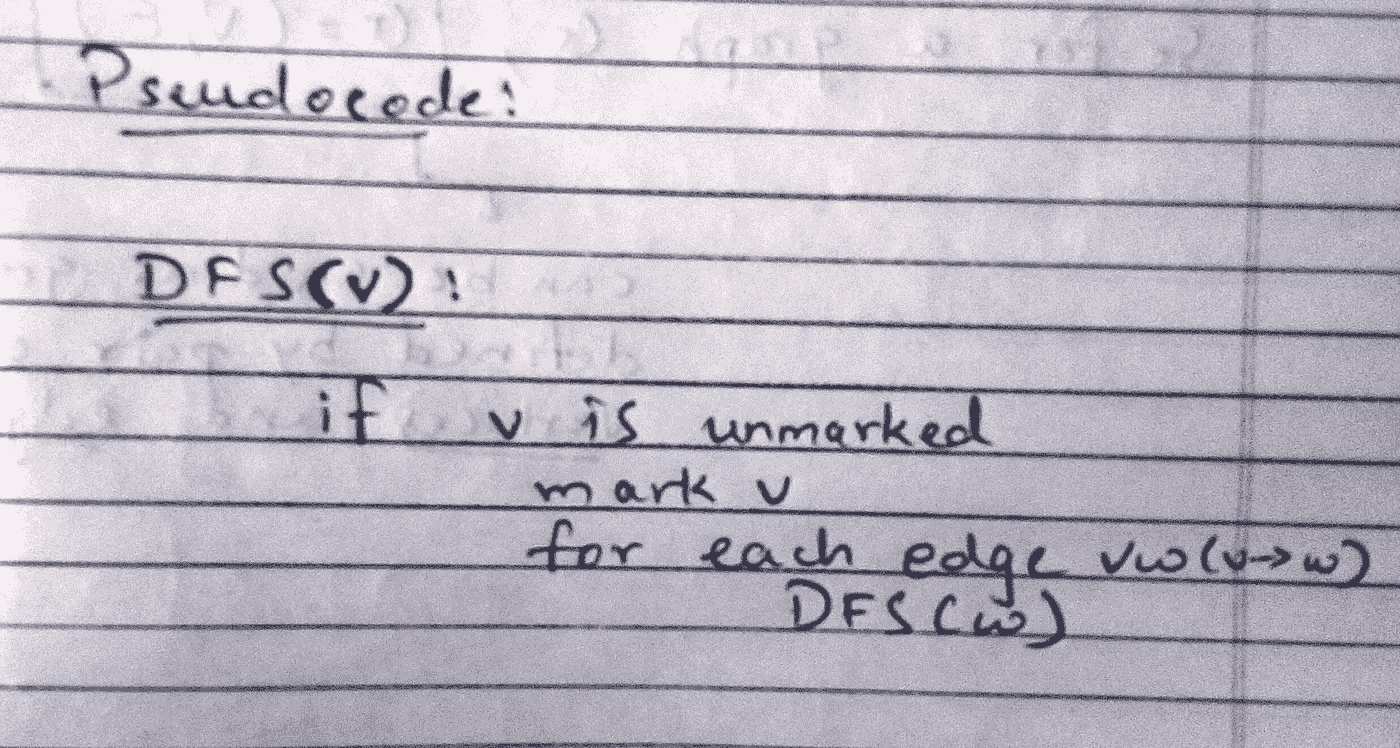 Pseudocode:
DFS(v):
if v is unmarked
mark v
for each edge vw(v→w)
DFS(w)